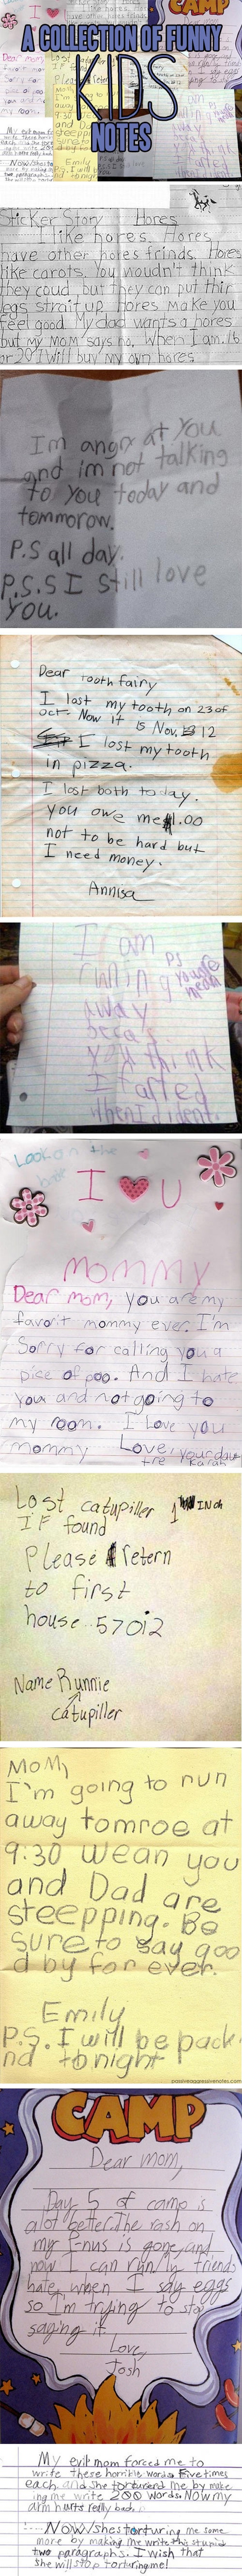 CAMP
A COLLECTION OF FUNNY
KIDS
NOTES
Sticker Story Hores
I like hores. Hores
have other hores frinds. Hores
like carots. You wouldn't think
they coud but they can put thir
legs strait up. Hores make you
feel good. My dad wants a hores
but my mom says no. When I am 16
or 20 I will buy my own hores
Im angry at You
and im not talking
to You today and
tommorow.
P.S all day.
P.S.S I still love
you.
Dear tooth fairy
I lost my tooth on 23 of
oct. Now it is Nov. 12
I lost my tooth
in pizza.
I lost both today.
you owe me $1.00
not to be hard but
I need money.
Annisa
I am
runing
away
becas
you think
I farted
when I dident.
PS
your
mean
Look on the
back
I U
MOMMY
Dear mom, you are my
favorit mommy ever. I'm
Sorry for calling you a
pice of poo. And I hate
you and not going to
my room. I Love you
mommy Love, your dau
tre Karah
Lost catupiller 1 INch
IF found
Please retern
to first
house 57012
Name Runnie
catupiller
Mom,
I'm going to run
away tomroe at
9:30 wean you
and Dad are
steepping. Be
sure to say goo
d by for ever.
Emily
P.S. I will be pack
nd tonight
passiveaggressivenotes.com
CAMP
Dear mom,
Day 5 of camp is
alot better. The rash on
my P-nus is gone, and
now I can run! My friends
hate when I say eggs
so I'm trying to stop
saying it.
Love,
Josh
My evil mom forced me to
write these horrible words. Five times
each. and she torturend me by make
ing me write 200 words. Now my
arm hurts really bad.
Now! shes torturing me some
more by making me write this stupid
two paragraphs. I wish that
she will stop torturing me!